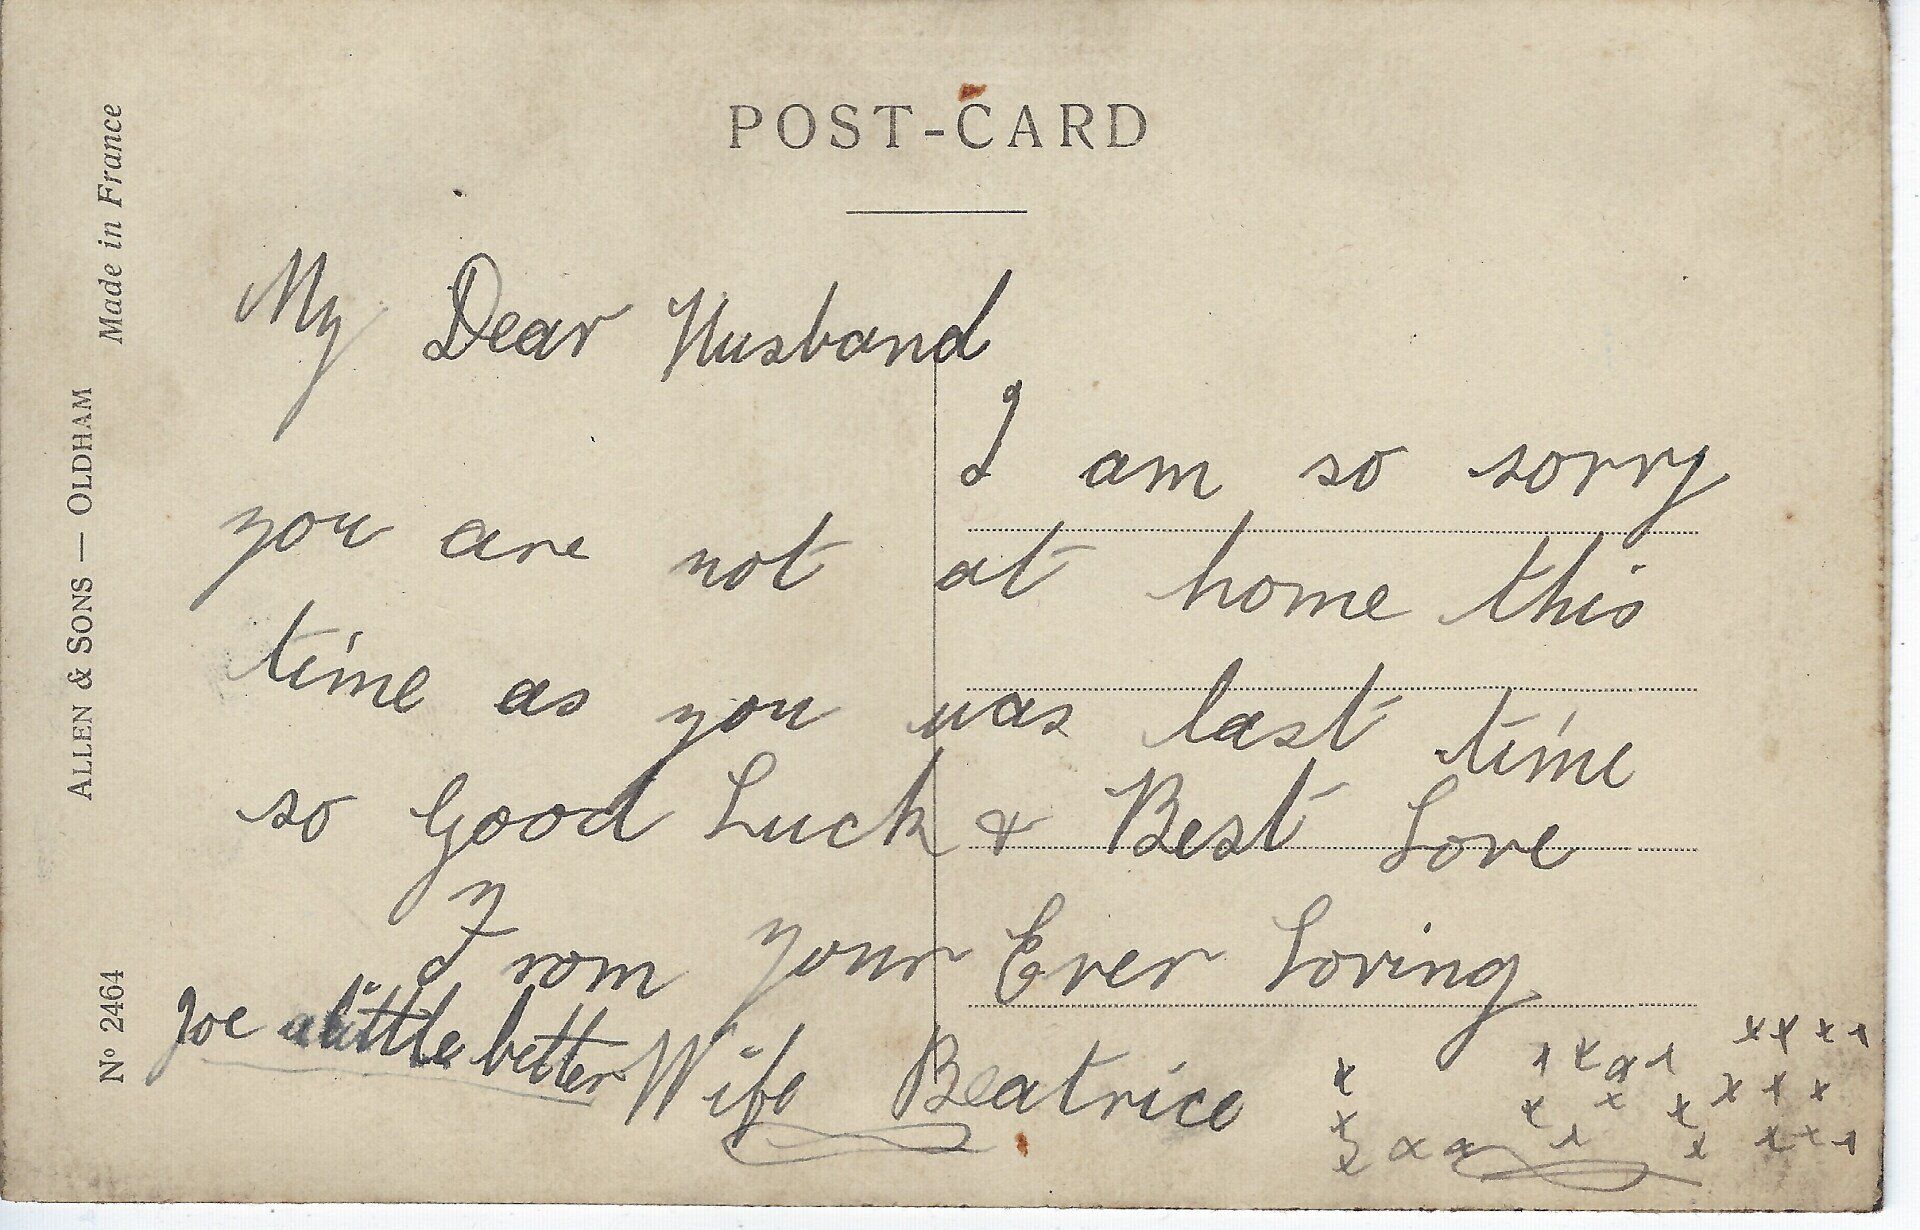 POST-CARD
My Dear Husband
I am so sorry
you are not at home this
time as you was last time
so Good Luck & Best Love
From your Ever Loving
Wife Beatrice
Joe a little better
x x x x x x x x x x x x x x x x x x x x x x x x x x x
ALLEN & SONS — OLDHAM
Made in France
No 2464